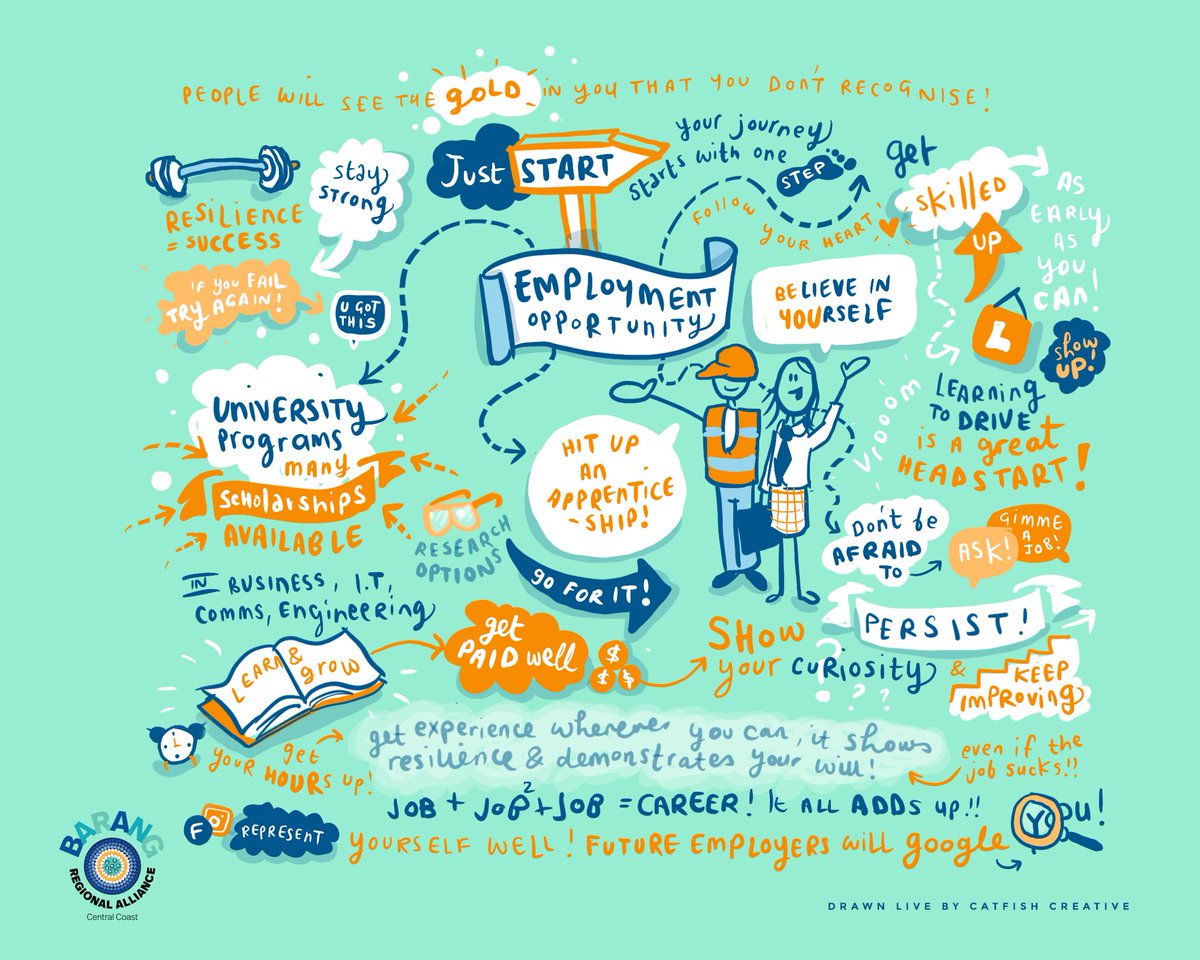 PEOPLE WILL SEE THE GOLD IN YOU THAT YOU DON'T RECOGNISE!
Just START
your journey
starts with one
STEP
Follow YOUR HEART
get
skilled
UP
AS
EARLY
AS
you
CAN!
stay
strong
RESILIENCE
= SUCCESS
IF YOU FAIL
TRY AGAIN!
U GOT
THIS
EMPLOYMENT
OPPORTUNITY
BELIEVE IN
YOURSELF
L
show
UP!
LEARNING
TO DRIVE
IS A great
HEADSTART!
Vrooom
UNIVERSITY
Programs
MANY
Scholarships
AVAILABLE
IN BUSINESS, I.T,
COMMS, Engineering
RESEARCH
OPTIONS
HIT UP
AN
APPRENTICE
-SHIP!
GO FOR IT!
Don't be
AFRAID
TO
ASK!
GIMME
A
JOB!
PERSIST!
LEARN & grow
get
PAID well
$
$ $
SHOW
your curiosity &
? ? ?
KEEP
improving
get
your HOURS up!
get experience wherever you can, it shows
resilience & demonstrates your will!
even if the
job sucks!!
JOB + JOB² + JOB = CAREER! It ALL ADDS up!!
F
REPRESENT
YOURSELF WELL! FUTURE EMPLOYERS will google You!
BARANG
REGIONAL ALLIANCE
Central Coast
DRAWN LIVE BY CATFISH CREATIVE